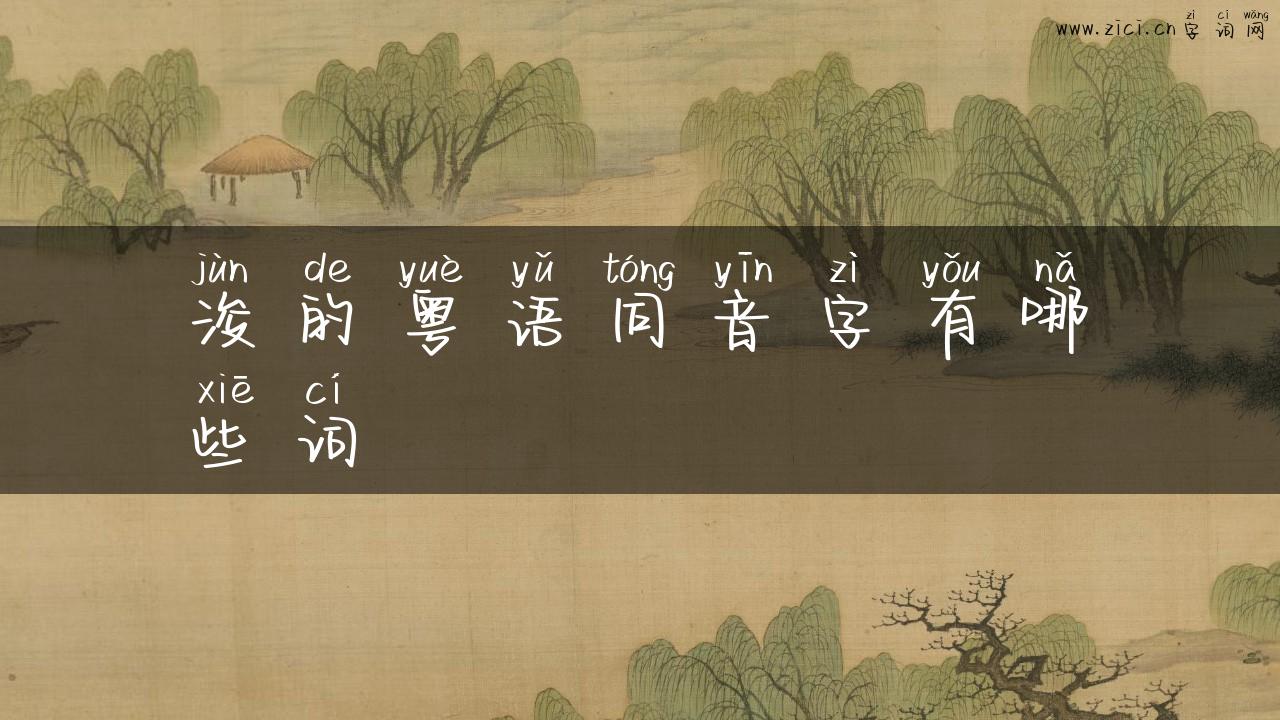 zì cí wǎng
www.zici.cn 字 词 网
jùn de yuè yǔ tóng yīn zì yǒu nǎ
浚 的 粤 语 同 音 字 有 哪
xiē cí
些 词